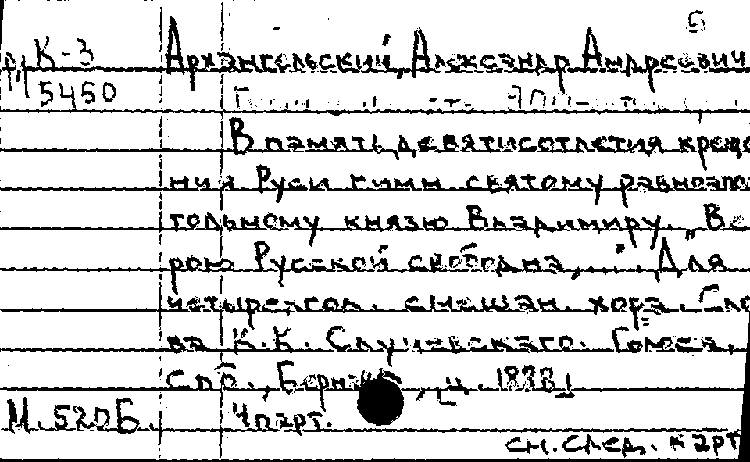 5
К-3 Архангельский, Александр Андреевич
5450
В память девятисотлетия креще
ния Руси гимн святому равноапос
тольному князю Владимиру. „Ве
рою Русской свободна,...". Для
четырехгол. смешан. хора. Сло
ва К.К. Случевскаго. Голоса.
Спб., Бернард, ц. 1888
М.520Б. 4 парт.
см. след. карт